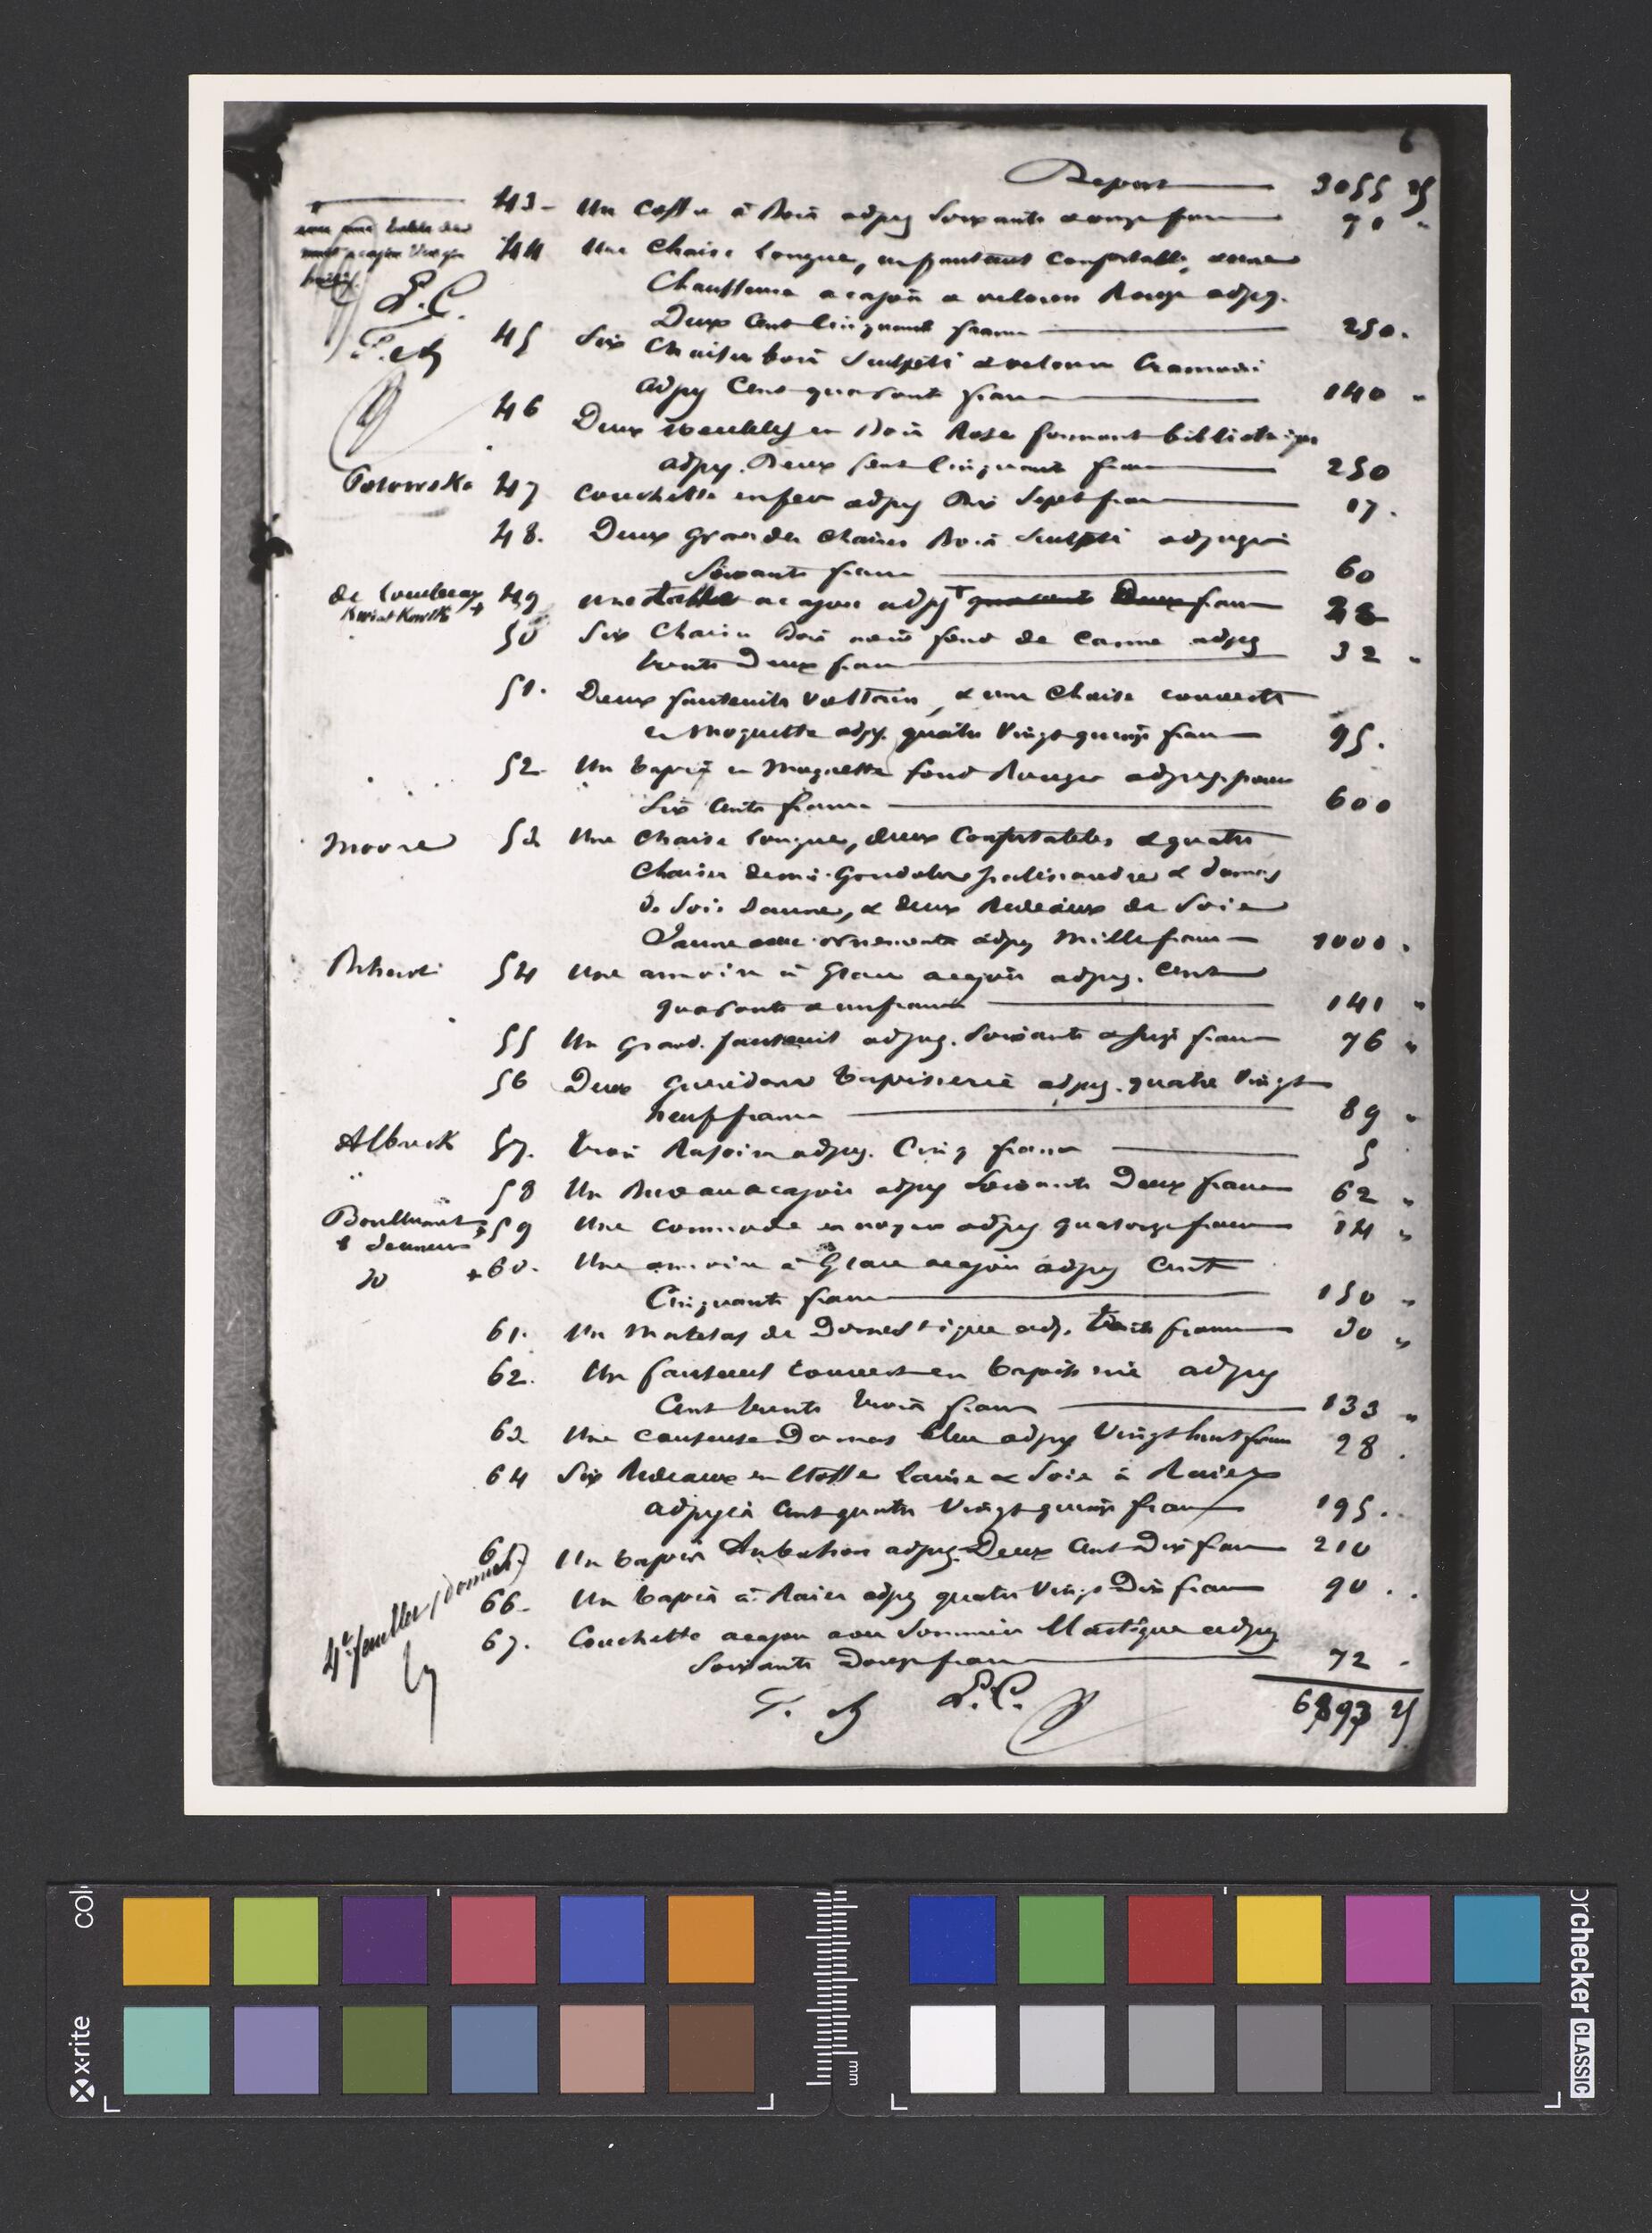 6
Report 3055 25
43 - Un coffre à Bois adjug soixante & onze francs 71 "
44 Une Chaise longue, un fauteuil confortable, & une
Chauffeuse acajou & velours Rouge adjug.
Deux Cent Cinquante francs 250 .
45 Six Chaises bois Sculpté & velours Cramoisi
adjug Cent quarante francs 140 "
46 Deux meubles en Bois Rose formant bibliothèque
adjug. Deux Cent Cinquante francs 250
Potowska 47 Couchette en fer adjug Dix Sept francs 17 .
48. Deux Grandes Chaises Bois Sculpté adjugé
Soixante francs 60
E.C.
49 une table acajou adjug quarante Deux francs
Kwiatkowski +
50 Six Chaises Bois noir fond de Canne adjug
trente Deux francs 32 "
51. Deux fauteuils Voltaire, & une Chaise couverte
en Moquette adjg. quatre Vingt quinze francs 95 .
52 - Un tapis en Moquette fond Rouge adjug. pour
Six Cents francs 600
Moore 53 Une Chaise longue, deux Confortables & quatre
Chaises demi-Gondoles palissandre & damas
de Soie Jaune, & deux Rideaux de Soie
Jaune avec ornements adjug Mille francs 1000 .
54 Une armoire à Glace acajou adjug. Cent
quarante & un francs 141 "
55 Un Grand fauteuil adjug. Soixante & Seize francs 76 "
56 Deux Guéridons tapisserie adjug. quatre Vingt
neuf francs 89 "
Albreck 57. trois Rasoirs adjug. Cinq francs 5
58 Un Bureau acajou adjug Soixante Deux francs 62 "
59 Une commode en noyer adjug quatorze francs 14 "
+ 60 - Une armoire à Glace acajou adjug Cent
Cinquante francs 150 "
61. Un Matelas de Domestique adj. trente francs 30 "
62. Un fauteuil couvert en tapisserie adjug
Cent trente trois francs 133 "
63 Une causeuse Damas bleu adjug Vingt huit francs 28 .
64 Six Rideaux en Etoffe laine & Soie à Raies
adjugés Cent quatre Vingt quinze francs 195 . .
65 Un tapis Aubusson adjug. Deux Cent Dix francs 210
66 - Un tapis à Raies adjug quatre Vingt Dix francs 90 . .
67. Couchette acajou avec Sommier Elastique adjug
Soixante Douze francs 72 -
4e feuillet
E.C.
6893 25
col
x·rite
mm
orchecker CLASSIC